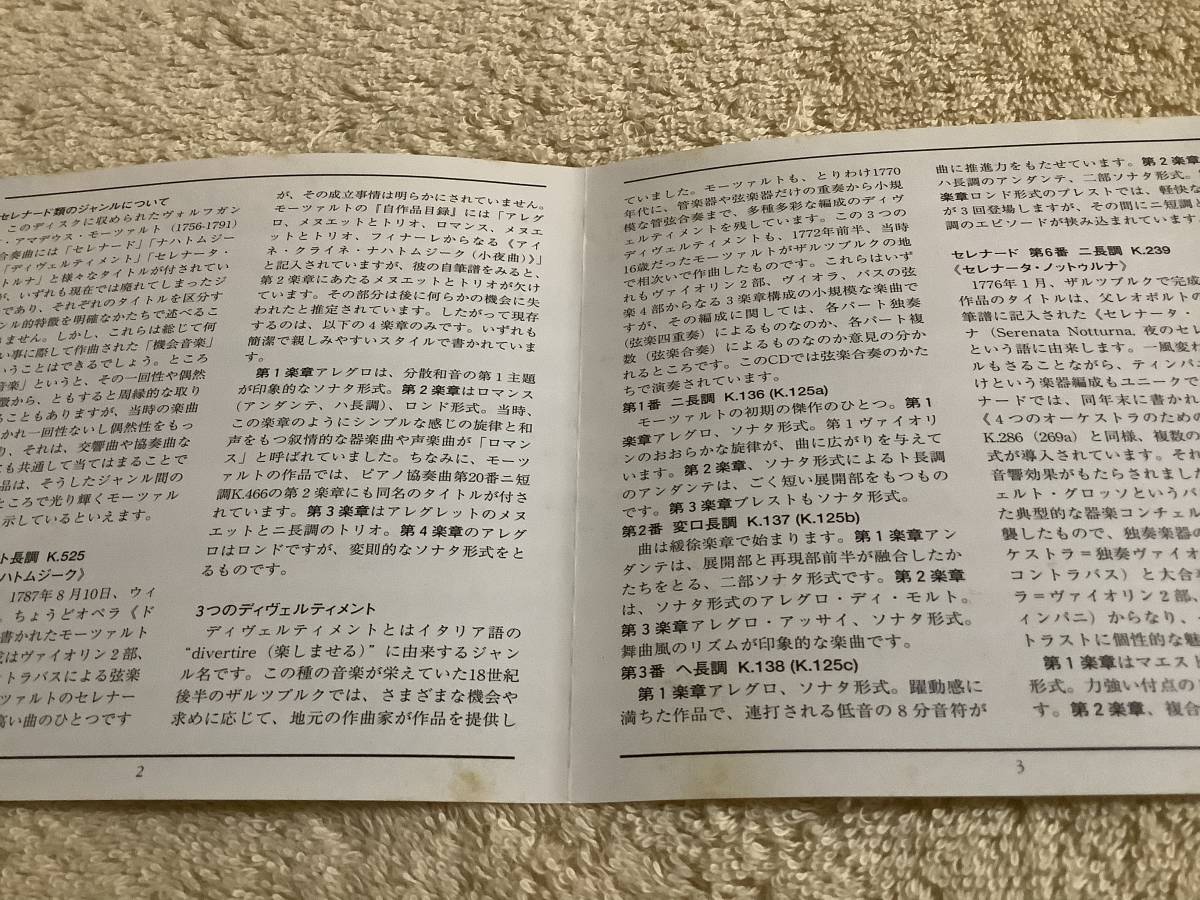 セレナード類のジャンルについて
このディスクに収められたヴォルフガン
・アマデウス・モーツァルト (1756-1791)
合奏曲には「セレナード」「ナハトムジー
「ディヴェルティメント」「セレナータ・
トルナ」と様々なタイトルが付されてい
が、いずれも現在では廃れてしまったジ
であり、それぞれのタイトルを区分す
ンル的特徴を明確なかたちで述べるこ
きません。しかし、これらは総じて何
い事に際して作曲された「機会音楽」
いうことはできるでしょう。ところ
音楽」というと、その一回性や偶然
徴から、ともすると周縁的な取り
ることもありますが、当時の楽曲
かれ一回性ないし偶然性をもっ
り、それは、交響曲や協奏曲な
も共通して当てはまることで
品は、そうしたジャンル間の
ところで光り輝くモーツァル
示しているといえます。
ト長調 K.525
ハトムジーク》
1787年8月10日、ウィ
。ちょうどオペラ《ド
書かれたモーツァルト
成はヴァイオリン2部、
トラバスによる弦楽
ツァルトのセレナー
高い曲のひとつです
が、その成立事情は明らかにされていません。
モーツァルトの『自作品目録』には「アレグ
ロ、メヌエットとトリオ、ロマンス、メヌエ
ットとトリオ、フィナーレからなる《アイ
ネ・クライネ・ナハトムジーク(小夜曲)》」
と記入されていますが、彼の自筆譜をみると、
第2楽章にあたるメヌエットとトリオが欠け
ています。その部分は後に何らかの機会に失
われたと推定されています。したがって現存
するのは、以下の4楽章のみです。いずれも
簡潔で親しみやすいスタイルで書かれていま
す。
第1楽章アレグロは、分散和音の第1主題
が印象的なソナタ形式。第2楽章はロマンス
(アンダンテ、ハ長調)、ロンド形式。当時、
この楽章のようにシンプルな感じの旋律と和
声をもつ叙情的な器楽曲や声楽曲が「ロマン
ス」と呼ばれていました。ちなみに、モーツ
ァルトの作品では、ピアノ協奏曲第20番ニ短
調K.466の第2楽章にも同名のタイトルが付さ
れています。第3楽章はアレグレットのメヌ
エットとニ長調のトリオ。第4楽章のアレグ
ロはロンドですが、変則的なソナタ形式をと
るものです。
3つのディヴェルティメント
ディヴェルティメントとはイタリア語の
“divertire(楽しませる)”に由来するジャン
ル名です。この種の音楽が栄えていた18世紀
後半のザルツブルクでは、さまざまな機会や
求めに応じて、地元の作曲家が作品を提供し
2
ていました。モーツァルトも、とりわけ1770
年代に、管楽器や弦楽器だけの重奏から小規
模な管弦合奏まで、多種多彩な編成のディヴ
ェルティメントを残しています。この3つの
ディヴェルティメントも、1772年前半、当時
16歳だったモーツァルトがザルツブルクの地
で相次いで作曲したものです。これらはいず
れもヴァイオリン2部、ヴィオラ、バスの弦
楽4部からなる3楽章構成の小規模な楽曲で
すが、その編成に関しては、各パート独奏
(弦楽四重奏)によるものなのか、各パート複
数(弦楽合奏)によるものなのか意見の分か
れるところです。このCDでは弦楽合奏のかた
ちで演奏されています。
第1番 ニ長調 K.136 (K.125a)
モーツァルトの初期の傑作のひとつ。第1
楽章アレグロ、ソナタ形式。第1ヴァイオリ
ンのおおらかな旋律が、曲に広がりを与えて
います。第2楽章、ソナタ形式によるト長調
のアンダンテは、ごく短い展開部をもつもの
です。第3楽章プレストもソナタ形式。
第2番 変ロ長調 K.137 (K.125b)
曲は緩徐楽章で始まります。第1楽章アン
ダンテは、展開部と再現部前半が融合したか
たちをとる、二部ソナタ形式です。第2楽章
は、ソナタ形式のアレグロ・ディ・モルト。
第3楽章アレグロ・アッサイ、ソナタ形式。
舞曲風のリズムが印象的な楽曲です。
第3番 ヘ長調 K.138 (K.125c)
第1楽章アレグロ、ソナタ形式。躍動感に
満ちた作品で、連打される低音の8分音符が
曲に推進力をもたせています。第2楽章
ハ長調のアンダンテ、二部ソナタ形式。
楽章ロンド形式のプレストでは、軽快な
が3回登場しますが、その間にニ短調と
調のエピソードが挟み込まれています
セレナード 第6番 ニ長調 K.239
《セレナータ・ノットゥルナ》
1776年1月、ザルツブルクで完成
作品のタイトルは、父レオポルトの
筆譜に記入された《セレナータ・
ナ (Serenata Notturna, 夜のセレ
という語に由来します。一風変わ
ルもさることながら、ティンパニ
けという楽器編成もユニークで
ナードでは、同年末に書かれ
《4つのオーケストラのため
K.286 (269a) と同様、複数の
式が導入されています。それ
音響効果がもたらされまし
ェルト・グロッソというバ
た典型的な器楽コンチェル
襲したもので、独奏楽器
ケストラ=独奏ヴァイオ
コントラバス)と大合奏
ラ=ヴァイオリン2部、
ィンパニ)からなり、
トラストに個性的な魅
第1楽章はマエスト
形式。力強い付点の
す。第2楽章、複合
3